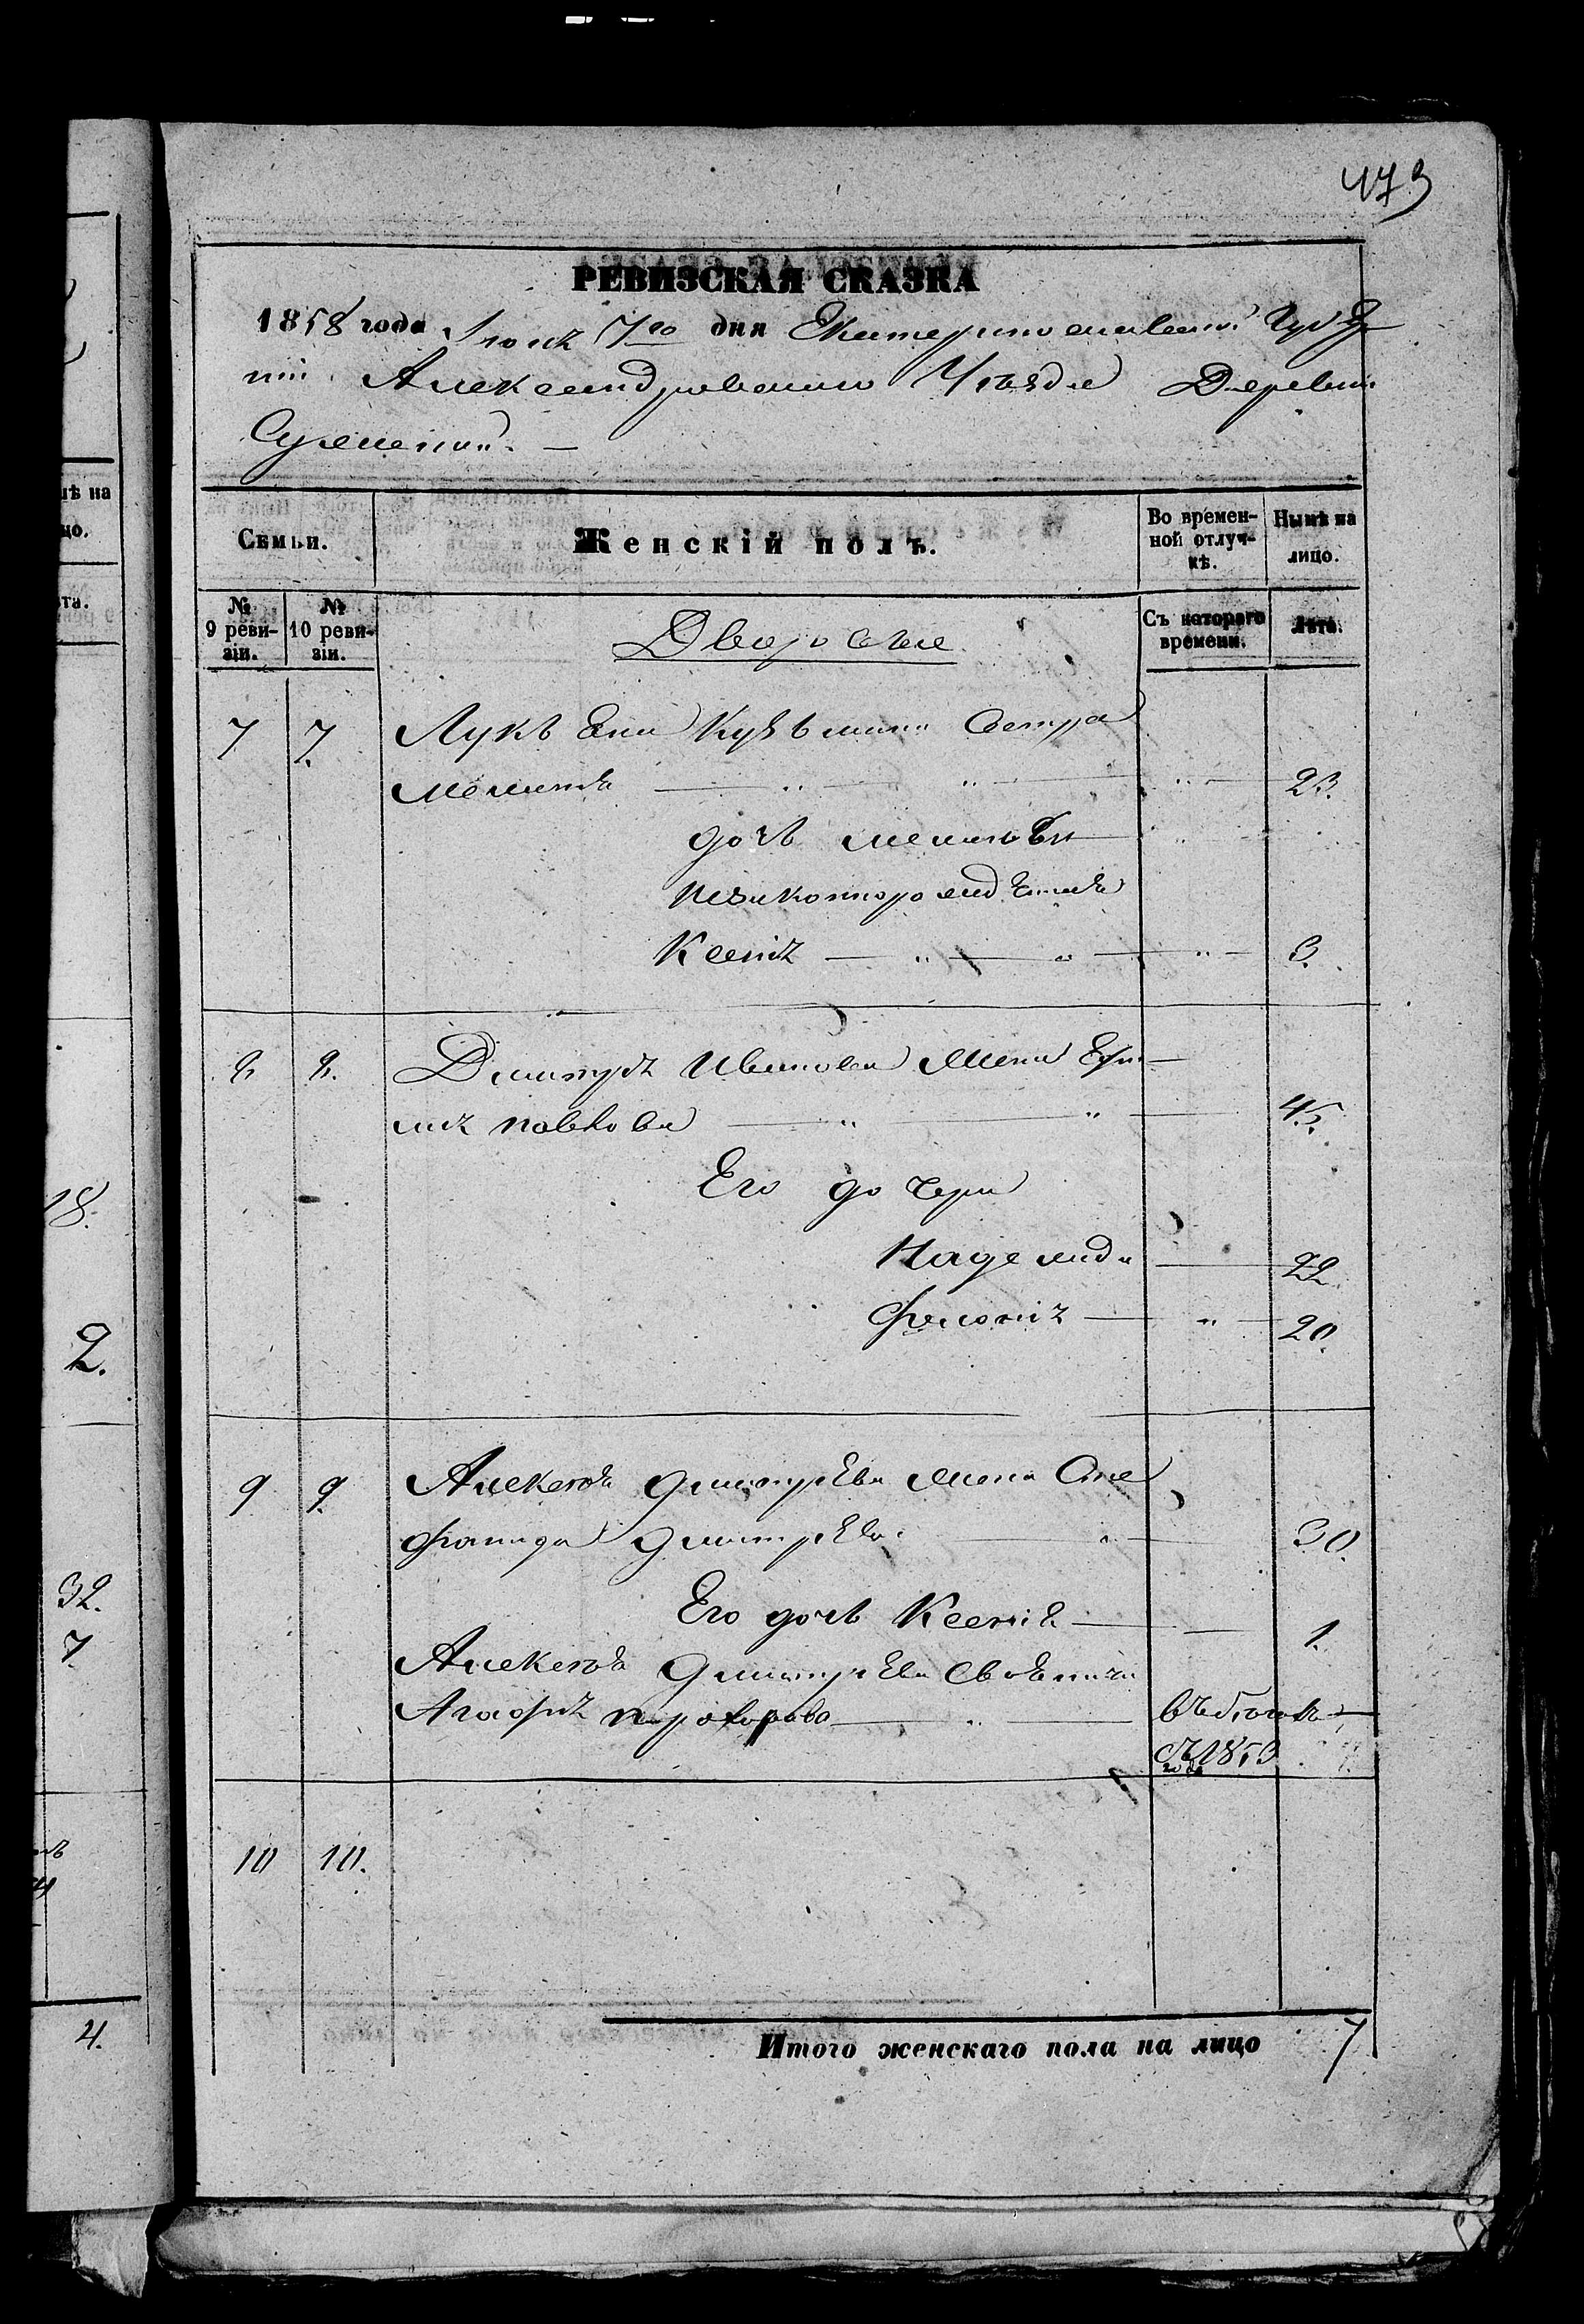 473
РЕВИЗСКАЯ СКАЗКА
1858 года Июня 7го дня Екатеринославской Губер
нiи Александровского Уѣзда Деревни
Семьи. Женскiй полъ. Во времен-ной отлуч-кѣ. Нынѣ на лицо.
№ 9 реви-зiи. № 10 реви-зiи. Дворовые Съ котораго времени. Лѣта.
7 7. Кузьмина Сестра
23.
дочь
незаконнорожденная
Ксенiя 3.
8 8. Дмитрiя Иванова жена Ефи
мiя Павлова 45.
Его дочери
Надежда 22
Феосiя 20.
9 9. Алексѣя Дмитрiева жена Сте
фанида Дмитрiева 30.
Его дочь Ксенiя 1.
Алексѣя Дмитрiева
Агафiя Прохорова въ бѣгахъ
съ 1853
года
10 10.
Итого женскаго пола на лицо 7
ѣ на
цо.
та.
18.
2.
32.
7.
4.